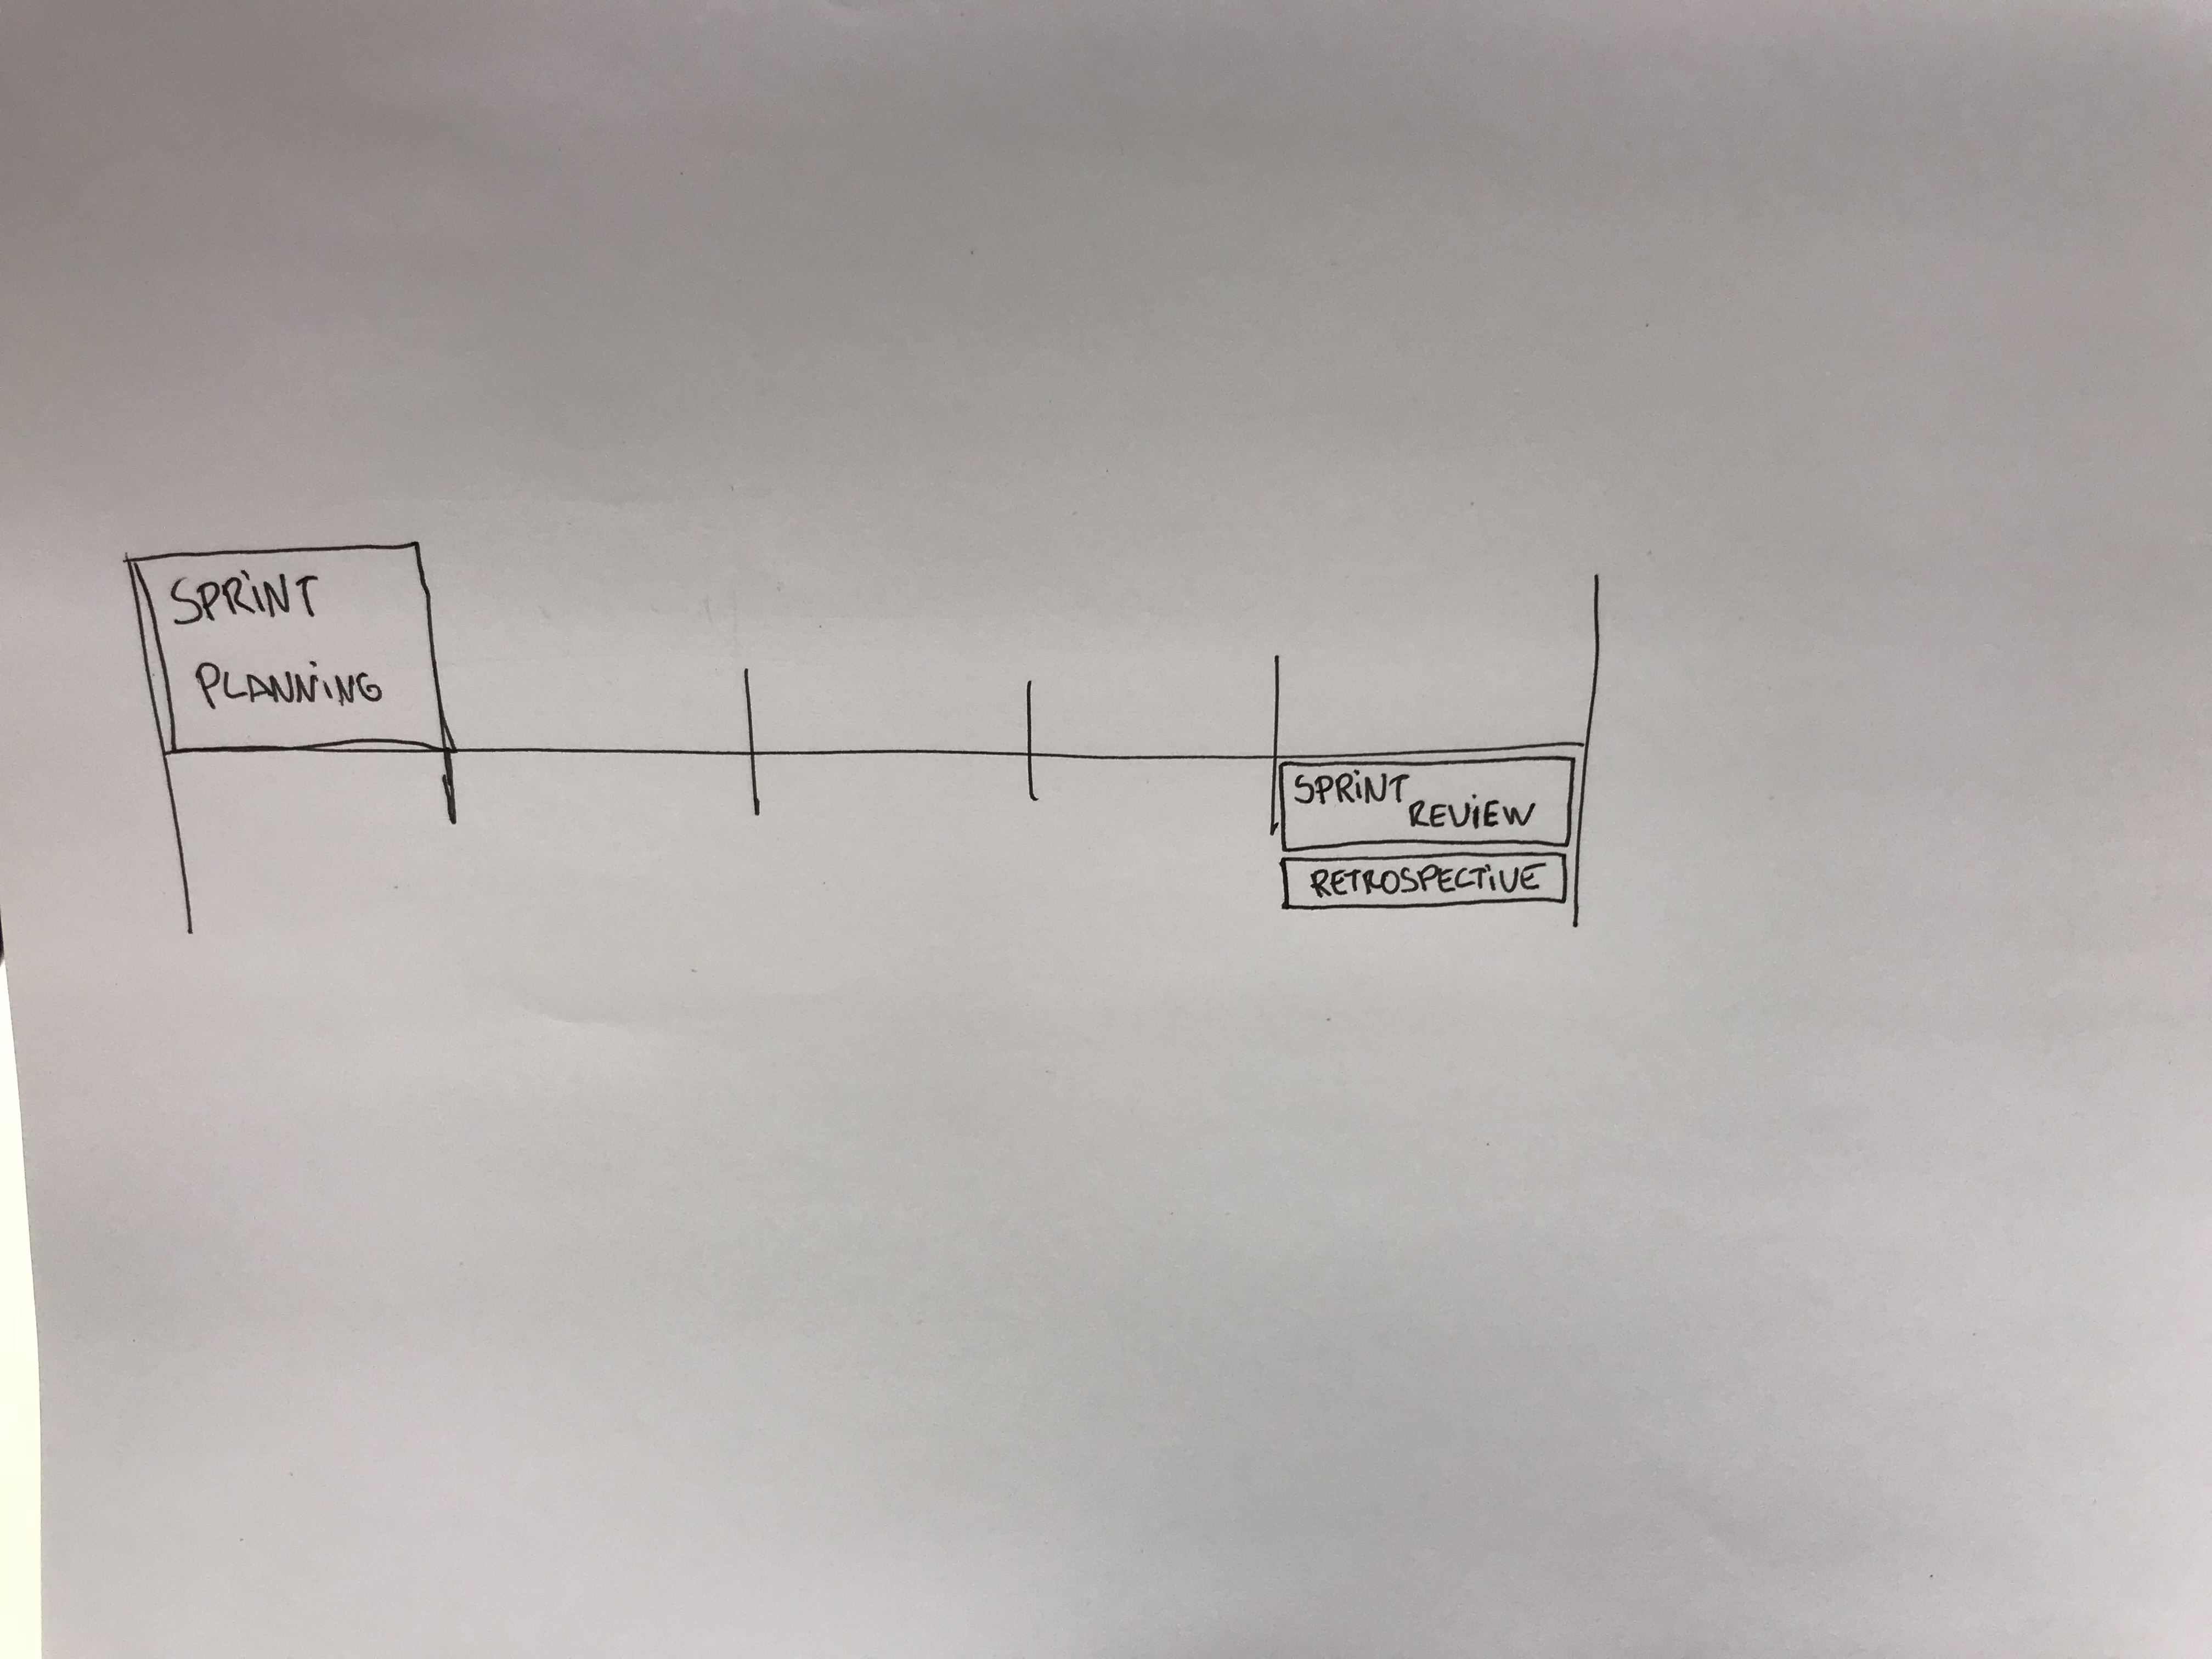 SPRINT
PLANNING
SPRINT
REVIEW
RETROSPECTIVE